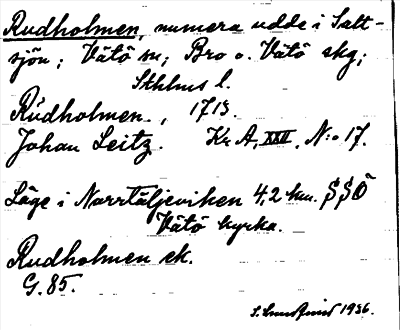 Rudholmen, numera udde i Salt-
sjön; Vätö sn; Bro o. Vätö skg;
Sthlms l.
Rúdholmen, 1713.
Johan Leitz. Kr. A, XXV, N:o 17.
Läge i Norrtäljeviken 4,2 km. SSÖ
Vätö kyrka.
Rudholmen ek.
G. 85.
1936.